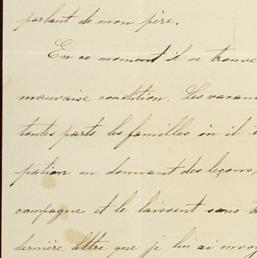 parlant de mon père.
En ce moment il se trouve
mauvaise condition. Les vacan
toutes parts les familles où il
pation en donnant des leçons,
campagne et le laissent sans
dernière lettre que je lui ai envoy